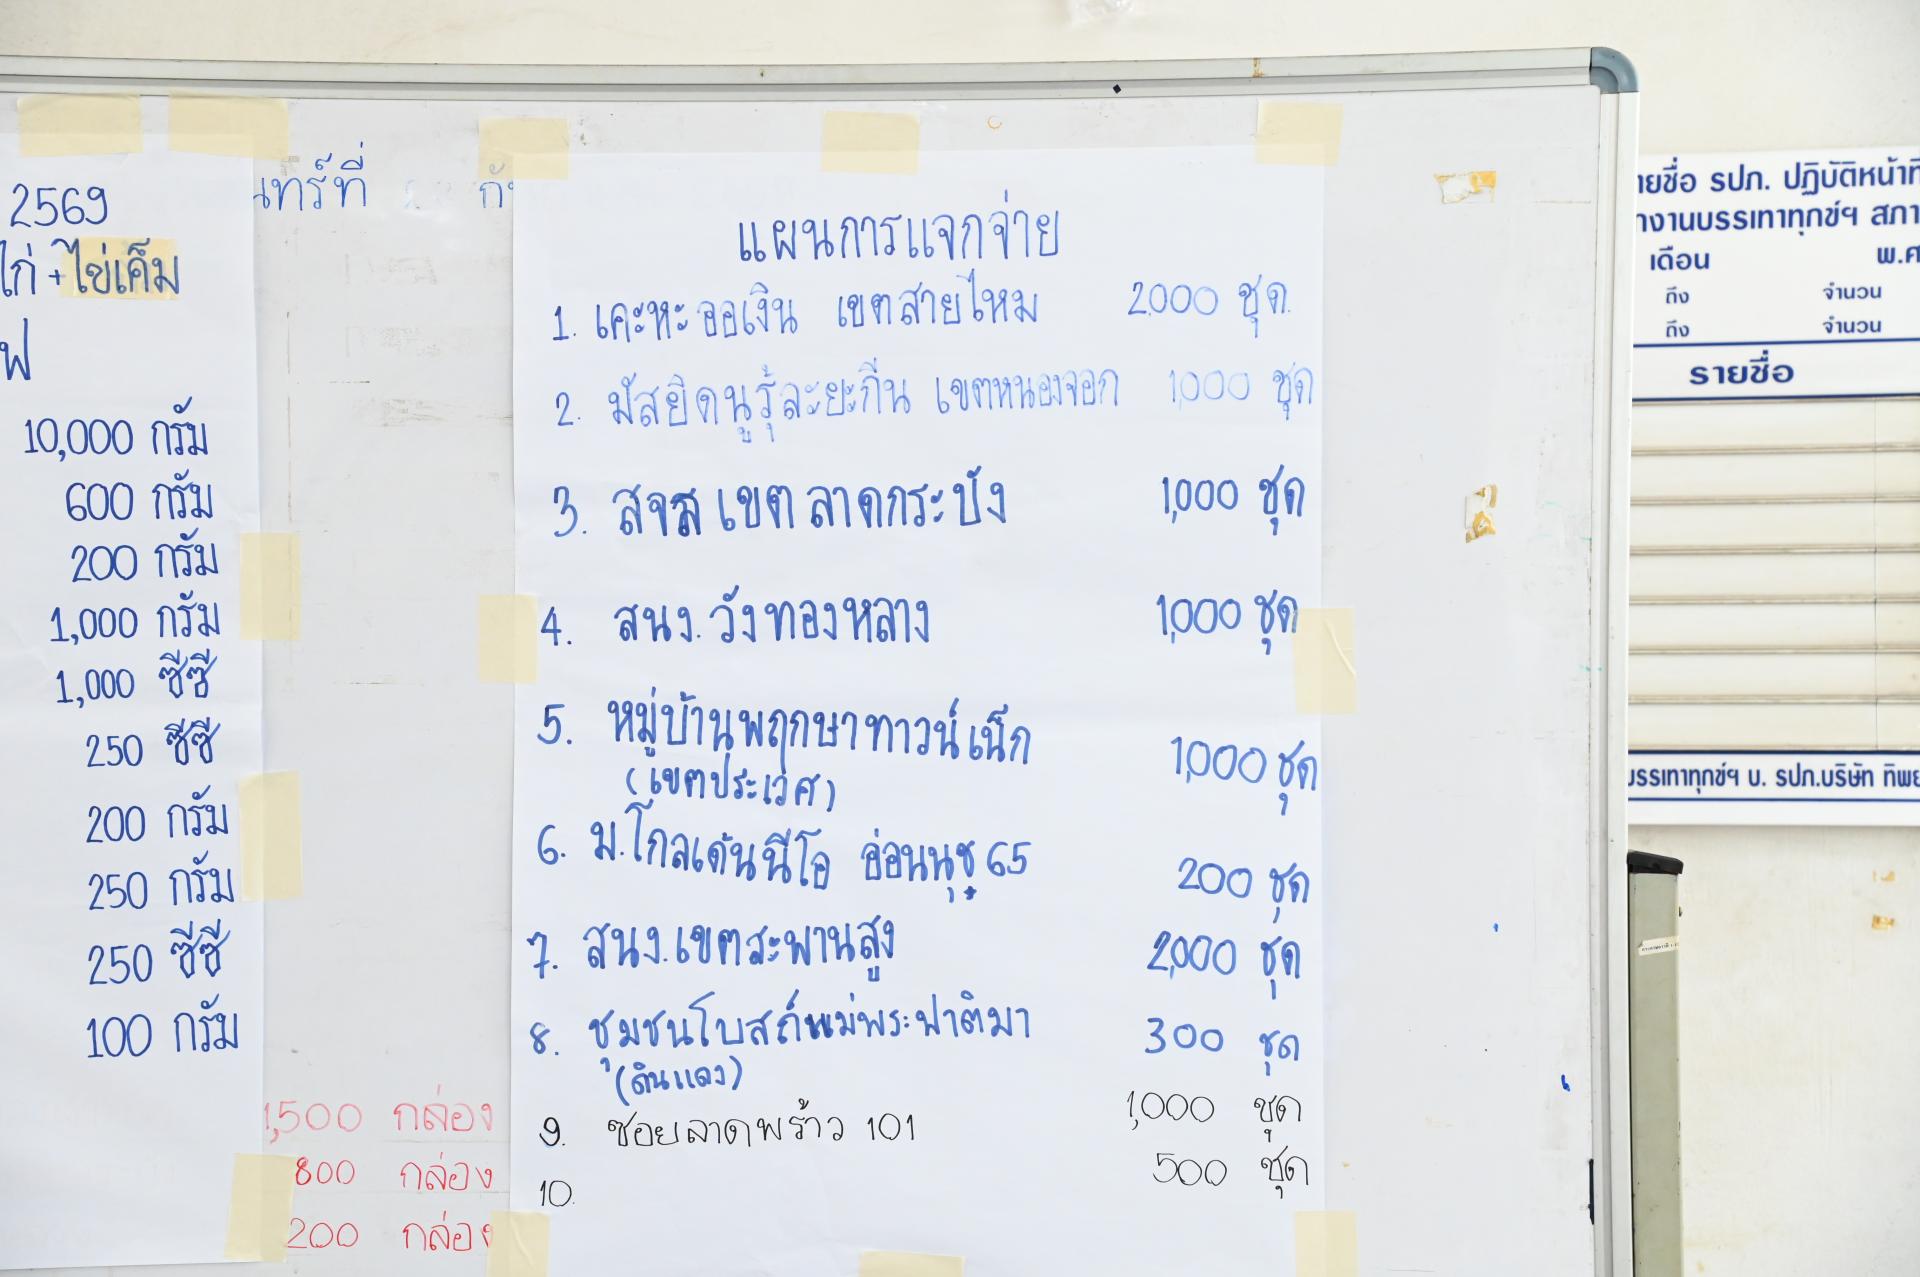 2569
ไก่ + ไข่เค็ม
ฟ
10,000 กรัม
600 กรัม
200 กรัม
1,000 กรัม
1,000 ซีซี
250 ซีซี
200 กรัม
250 กรัม
250 ซีซี
100 กรัม
1,500 กล่อง
800 กล่อง
200 กล่อง
แผนการแจกจ่าย
1. เคะหะออเงิน เขตสายไหม 2000 ชุด
2. มัสยิดนูรุ้ละยะกีน เขตหนองจอก 1,000 ชุด
3. สจส เขตลาดกระบัง 1,000 ชุด
4. สนง. วังทองหลาง 1,000 ชุด
5. หมู่บ้านพฤกษาทาวน์เน็ก 1,000 ชุด
(เขตประเวศ)
6. ม.โกลเด้นนีโอ อ่อนนุช 65 200 ชุด
7. สนง.เขตสะพานสูง 2,000 ชุด
8. ชุมชนโบสถ์แม่พระฟาติมา 300 ชุด
(ดินแดง)
9. ซอยลาดพร้าว 101 1,000 ชุด
10. 500 ชุด
รปภ. ปฏิบัติหน้าที่
บรรเทาทุกข์ฯ สภา
เดือน พ.ศ
ถึง จำนวน
ถึง จำนวน
รายชื่อ
บรรเทาทุกข์ฯ บ. รปภ.บริษัท ทิพย